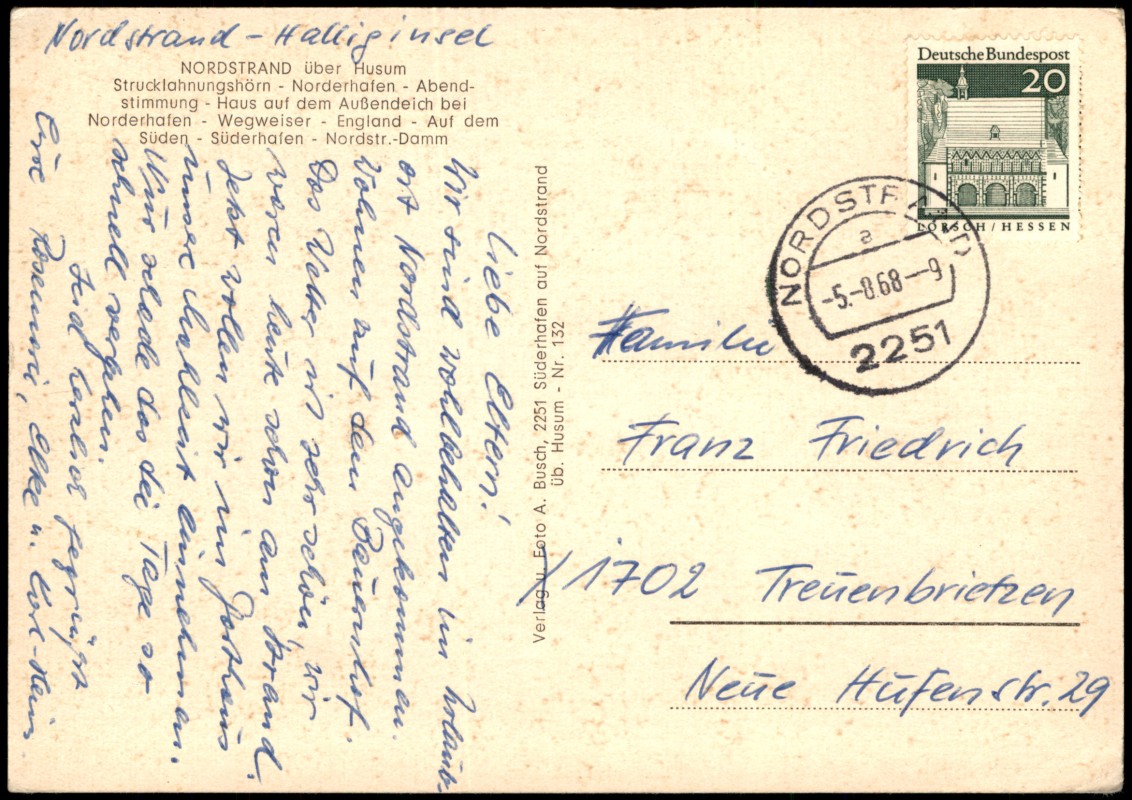 Nordstrand - Halliginsel
NORDSTRAND über Husum
Strucklahnungshörn - Norderhafen - Abend-
stimmung - Haus auf dem Außendeich bei
Norderhafen - Wegweiser - England - Auf dem
Süden - Süderhafen - Nordstr.-Damm
Liebe Eltern!
Wir sind wohlbehalten im Urlaub-
ort Nordstrand angekommen.
Wohnen auf dem Bauernhof.
Das Wetter ist sehr schön, wir
waren heute schon am Strand.
Jetzt wollen wir im Gasthaus
unsere Mahlzeit einnehmen.
Nur schade das die Tage so
schnell vergehen.
Seid herzlich gegrüßt
Eure Rosemarie, Elke u. Karl-Hein
Verlag u. Foto A. Busch, 2251 Süderhafen auf Nordstrand
üb. Husum - Nr. 132
Deutsche Bundespost
20
LORSCH / HESSEN
NORDSTRAND
a
-5.-8.68--9
2251
Familie
Franz Friedrich
X 1702 Treuenbrietzen
Neue Hufenstr. 29